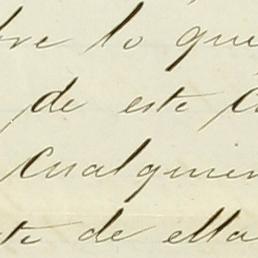 bre lo que
de este
cualquier
te de ella